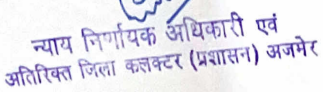 न्याय निर्णायक अधिकारी एवं
अतिरिक्त जिला कलक्टर (प्रशासन) अजमेर